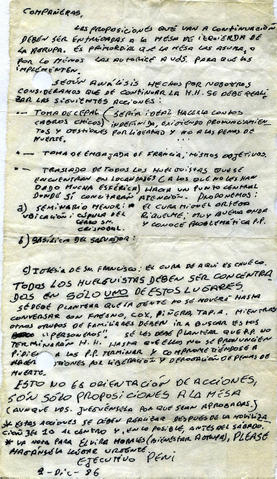 COMPAÑERAS,
LAS PROPOSICIONES QUE VAN A CONTINUACIÓN
DEBEN SER ENTREGADAS A LA MESA DE IZQUIERDA DE
LA AGRUPA. ES PRIMORDIAL QUE LA MESA LAS ASUMA, O
POR LO MENOS LAS AUTORICE A UDS. PARA QUE LAS
IMPLEMENTEN.
SEGÚN ANÁLISIS HECHO POR NOSOTROS
CONSIDERAMOS QUE DE CONTINUAR LA H.H. SE DEBE REALI
ZAR LAS SIGUIENTES ACCIONES:
- TOMA DE CEPAL (SERÍA IDEAL HACERLA CON LOS
CABROS CHICOS) INDEFINIDA, PIDIENDO PRONUNCIAMIEN
TOS Y GESTIONES POR LIBERTAD Y NO A LAS PENAS DE
MUERTE.
- TOMA DE EMBAJADA DE FRANCIA, MISMOS OBJETIVOS.
- TRASLADO DE TODOS LOS HUELGUISTAS QUE SE
ENCUENTRAN EN LOCALIDADES (A LAS QUE NO LES HAN
DADO MUCHA ESFÉRICA) HACIA UN PUNTO CENTRAL
DONDE SÍ CONCITARÁN ATENCIÓN. PROPONEMOS:
a) SEMINARIO MENOR: EL CURA MIGUEL ORTEGA
UBICACIÓN: CÚSPIDE DEL CERRO SN. CRISTÓBAL. RIQUELME, MUY BUENA ONDA Y CONOCE PROBLEMÁTICA P.P.
b) BASÍLICA DEL SALVADOR:
c) IGLESIA DE SN. FRANCISCO: EL CURA DE AQUÍ ES CHUECO.
TODOS LOS HUELGUISTAS DEBEN SER CONCENTRA
DOS EN SÓLO UNO DE ESTOS LUGARES
SE DEBE PLANTEAR QUE LA GENTE NO SE MOVERÁ HASTA
CONVERSAR CON FRESNO, COX, PIÑERA, TAPIA. MIENTRAS
OTROS GRUPOS DE FAMILIARES DEBEN IR A BUSCAR ESTOS
"PERSONEROS". SE LES DEBE PLANTEAR QUE P.P. NO
TERMINARÁN H.H. HASTA QUE ELLOS NO SE PRONUNCIEN
PIDIENDO A LOS P.P. TERMINAR Y COMPROMETIÉNDOSE A
HACER GESTIONES POR LIBERTAD Y DEROGACIÓN DE PENAS DE
MUERTE.
ESTO NO ES ORIENTACIÓN DE ACCIONES,
SON SÓLO PROPOSICIONES A LA MESA
(AUNQUE UDS. JUEGUENSELA POR QUE SEAN APROBADAS)
* ESTAS ACCIONES SE DEBEN REALIZAR DESPUÉS DE LA MOVILIZA
CIÓN DEL 10 AL CENTRO Y, EN LO POSIBLE, ANTES DEL SÁBADO.
* LA NOTA PARA ELVIRA MORALES (BIENESTAR), PLEASE
HÁGANSELA LLEGAR URGENTE.
EJECUTIVO PENI
2-DIC-86